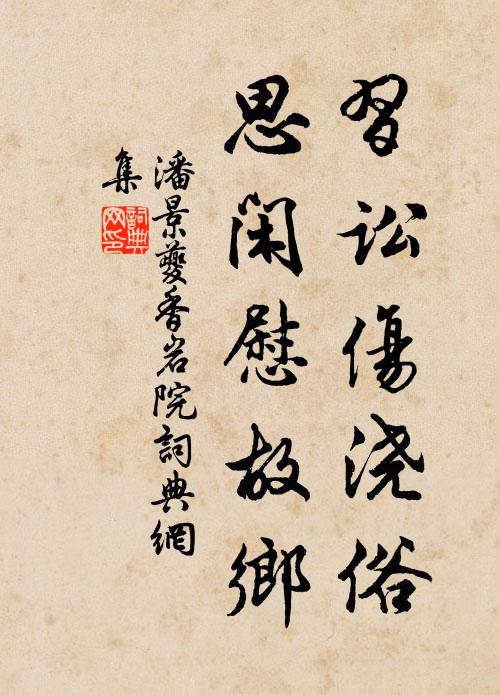 習訟傷浇俗
思閑慰故鄉
潘景夔香岩院詞典網
集
詞典網印